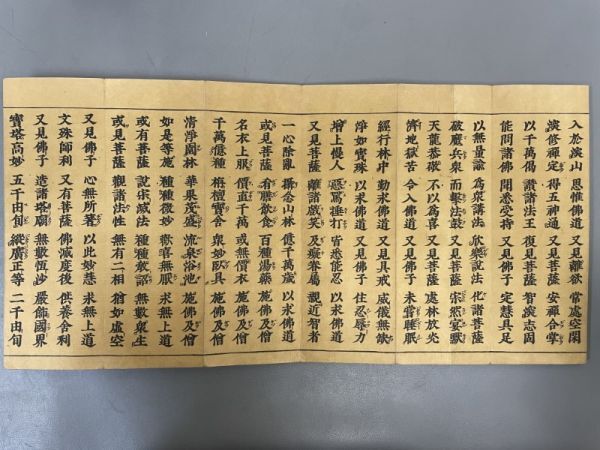 入於深山 思惟佛道 又見離欲 常處空閑
深修禪定 得五神通 又見菩薩 安禪合掌
以千萬偈 讚諸法王 復見菩薩 智深志固
能問諸佛 聞悉受持 又見佛子 定慧具足
以無量諭 爲衆講法 欣樂說法 化諸菩薩
破魔兵衆 而擊法鼓 又見菩薩 寂然宴默
天龍恭敬 不以爲喜 又見菩薩 處林放光
濟地獄苦 令入佛道 又見佛子 未嘗睡眠
經行林中 勤求佛道 又見具戒 威儀無缺
淨如寶珠 以求佛道 又見佛子 住忍辱力
增上慢人 惡罵捶打 皆悉能忍 以求佛道
又見菩薩 離諸戲笑 及癡眷屬 親近智者
一心除亂 攝念山林 億千萬歲 以求佛道
或見菩薩 肴膳飲食 百種湯藥 施佛及僧
名衣上服 價直千萬 或無價衣 施佛及僧
千萬億種 栴檀寶舍 衆妙臥具 施佛及僧
清淨園林 華果茂盛 流泉浴池 施佛及僧
如是等施 種種微妙 歡喜無厭 求無上道
或有菩薩 說寂滅法 種種教詔 無數衆生
或見菩薩 觀諸法性 無有二相 猶如虛空
又見佛子 心無所著 以此妙慧 求無上道
文殊師利 又有菩薩 佛滅度後 供養舍利
又見佛子 造諸塔廟 無數恒沙 嚴飾國界
寶塔高妙 五千由旬 縱廣正等 二千由旬